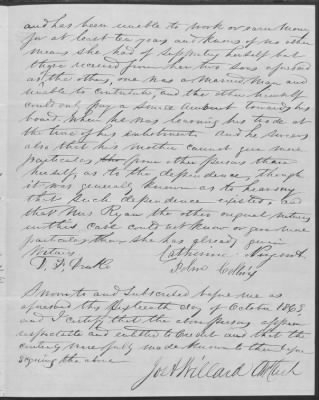 and has been unable to work or earn money
for at least ten years and knows of no other
means she had of supporting herself but
those received from her two sons aforesaid
as the others, one was a married man and
unable to contribute, and the other himself
could only pay a small amount towards his
board, when he was learning his trade at
the time of his enlistment. And he swears
also that his mother cannot give more
particulars from other persons than
herself as to the dependence, though
it was generally known as to hearsay
that such dependence existed, and
that Mrs Ryan the other original witness
in this case could not know or give more
particulars than she has already given
Witness Catherine
John Collins
Sworn to and Subscribed before me as
aforesaid this fifteenth day of October 1863,
and I certify that the above persons appear
respectable and entitled to credit and that the
contents were fully made known to them before
signing the above
Jos A Willard Clerk